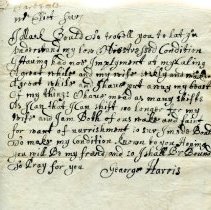 Sir
I Make Bould to troble you to let you
understand my low & distressed Condition
I Having had no Imployment at my calling
a great while and my wife sickly and
a great while and I have put away my
of my things I have made as many shifts
as I can that I can shift no longer for my
wife and I am Both of us weake and faint
for want of nurrishment
to make my condition known to you hoping
you will be my friend and so I shall be Bound
to Pray for you George Harris